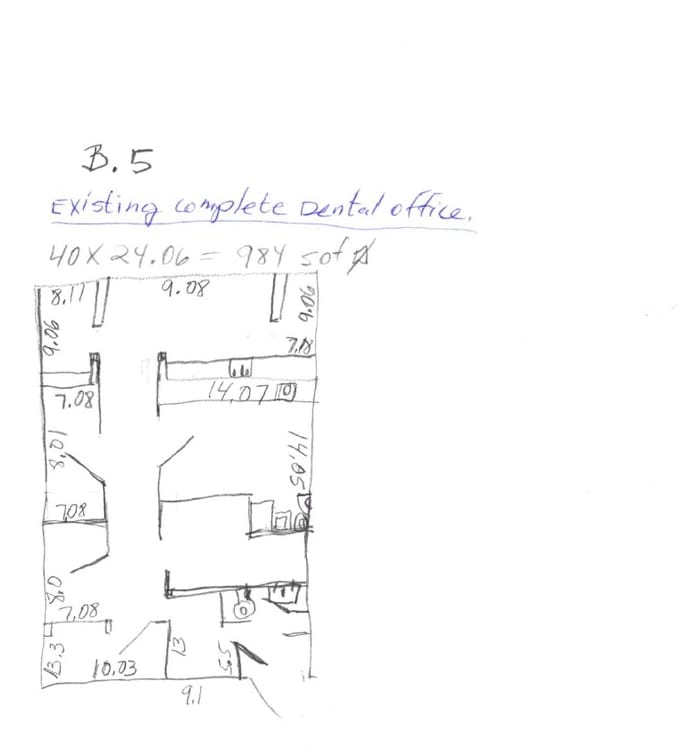 B.5
Existing complete Dental office.
40 X 24.06 = 984 sqf
8.11 9.08 9.06
9.06
7.18
7.08 14.07
8.01 14.05
7.08
8.0
7.08
13.3 10.03 13 5.5
9.1